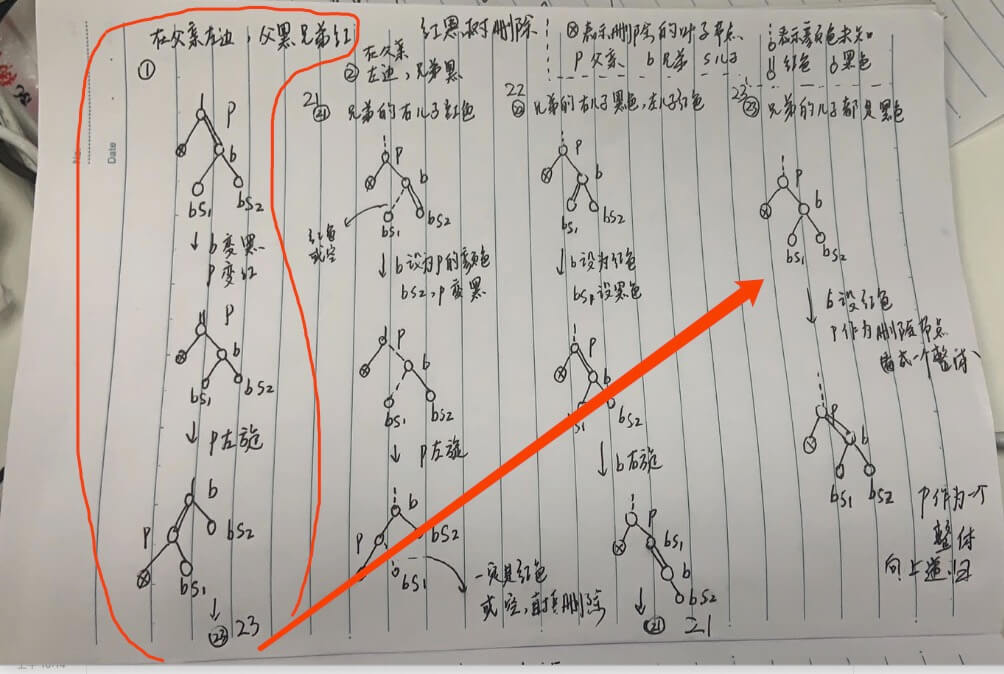 在父亲左边,父黑兄弟红
①
p
b
bs1
bs2
↓ b变黑
p变红
p
b
bs1
bs2
↓ p左旋
b
p
bs2
bs1
↓
㉓ 23
红黑树删除
ⓧ表示删除的叶子节点
p 父亲 b 兄弟 s儿子
表示颜色未知
红色 黑色
在父亲
② 左边,兄弟黑
21
㉑ 兄弟的右儿子红色
p
b
bs1
bs2
红色
或空
↓ b设为p的颜色
bs2,p变黑
p
b
bs1
bs2
↓ p左旋
b
p
bs2
bs1
一定是红色
或空,直接删除
22
㉒ 兄弟的右儿子黑色,左儿子红色
p
b
bs1
bs2
↓ b设为红色
bs1设黑色
p
b
s1
bs2
↓ b右旋
p
bs1
b
bs2
↓
㉑ 21
23
㉓ 兄弟的儿子都是黑色
p
b
bs1
bs2
↓ b设红色
p作为删除节点
看成一个整体
p
b
bs1
bs2
p作为一个
整体
向上递归
No.
Date